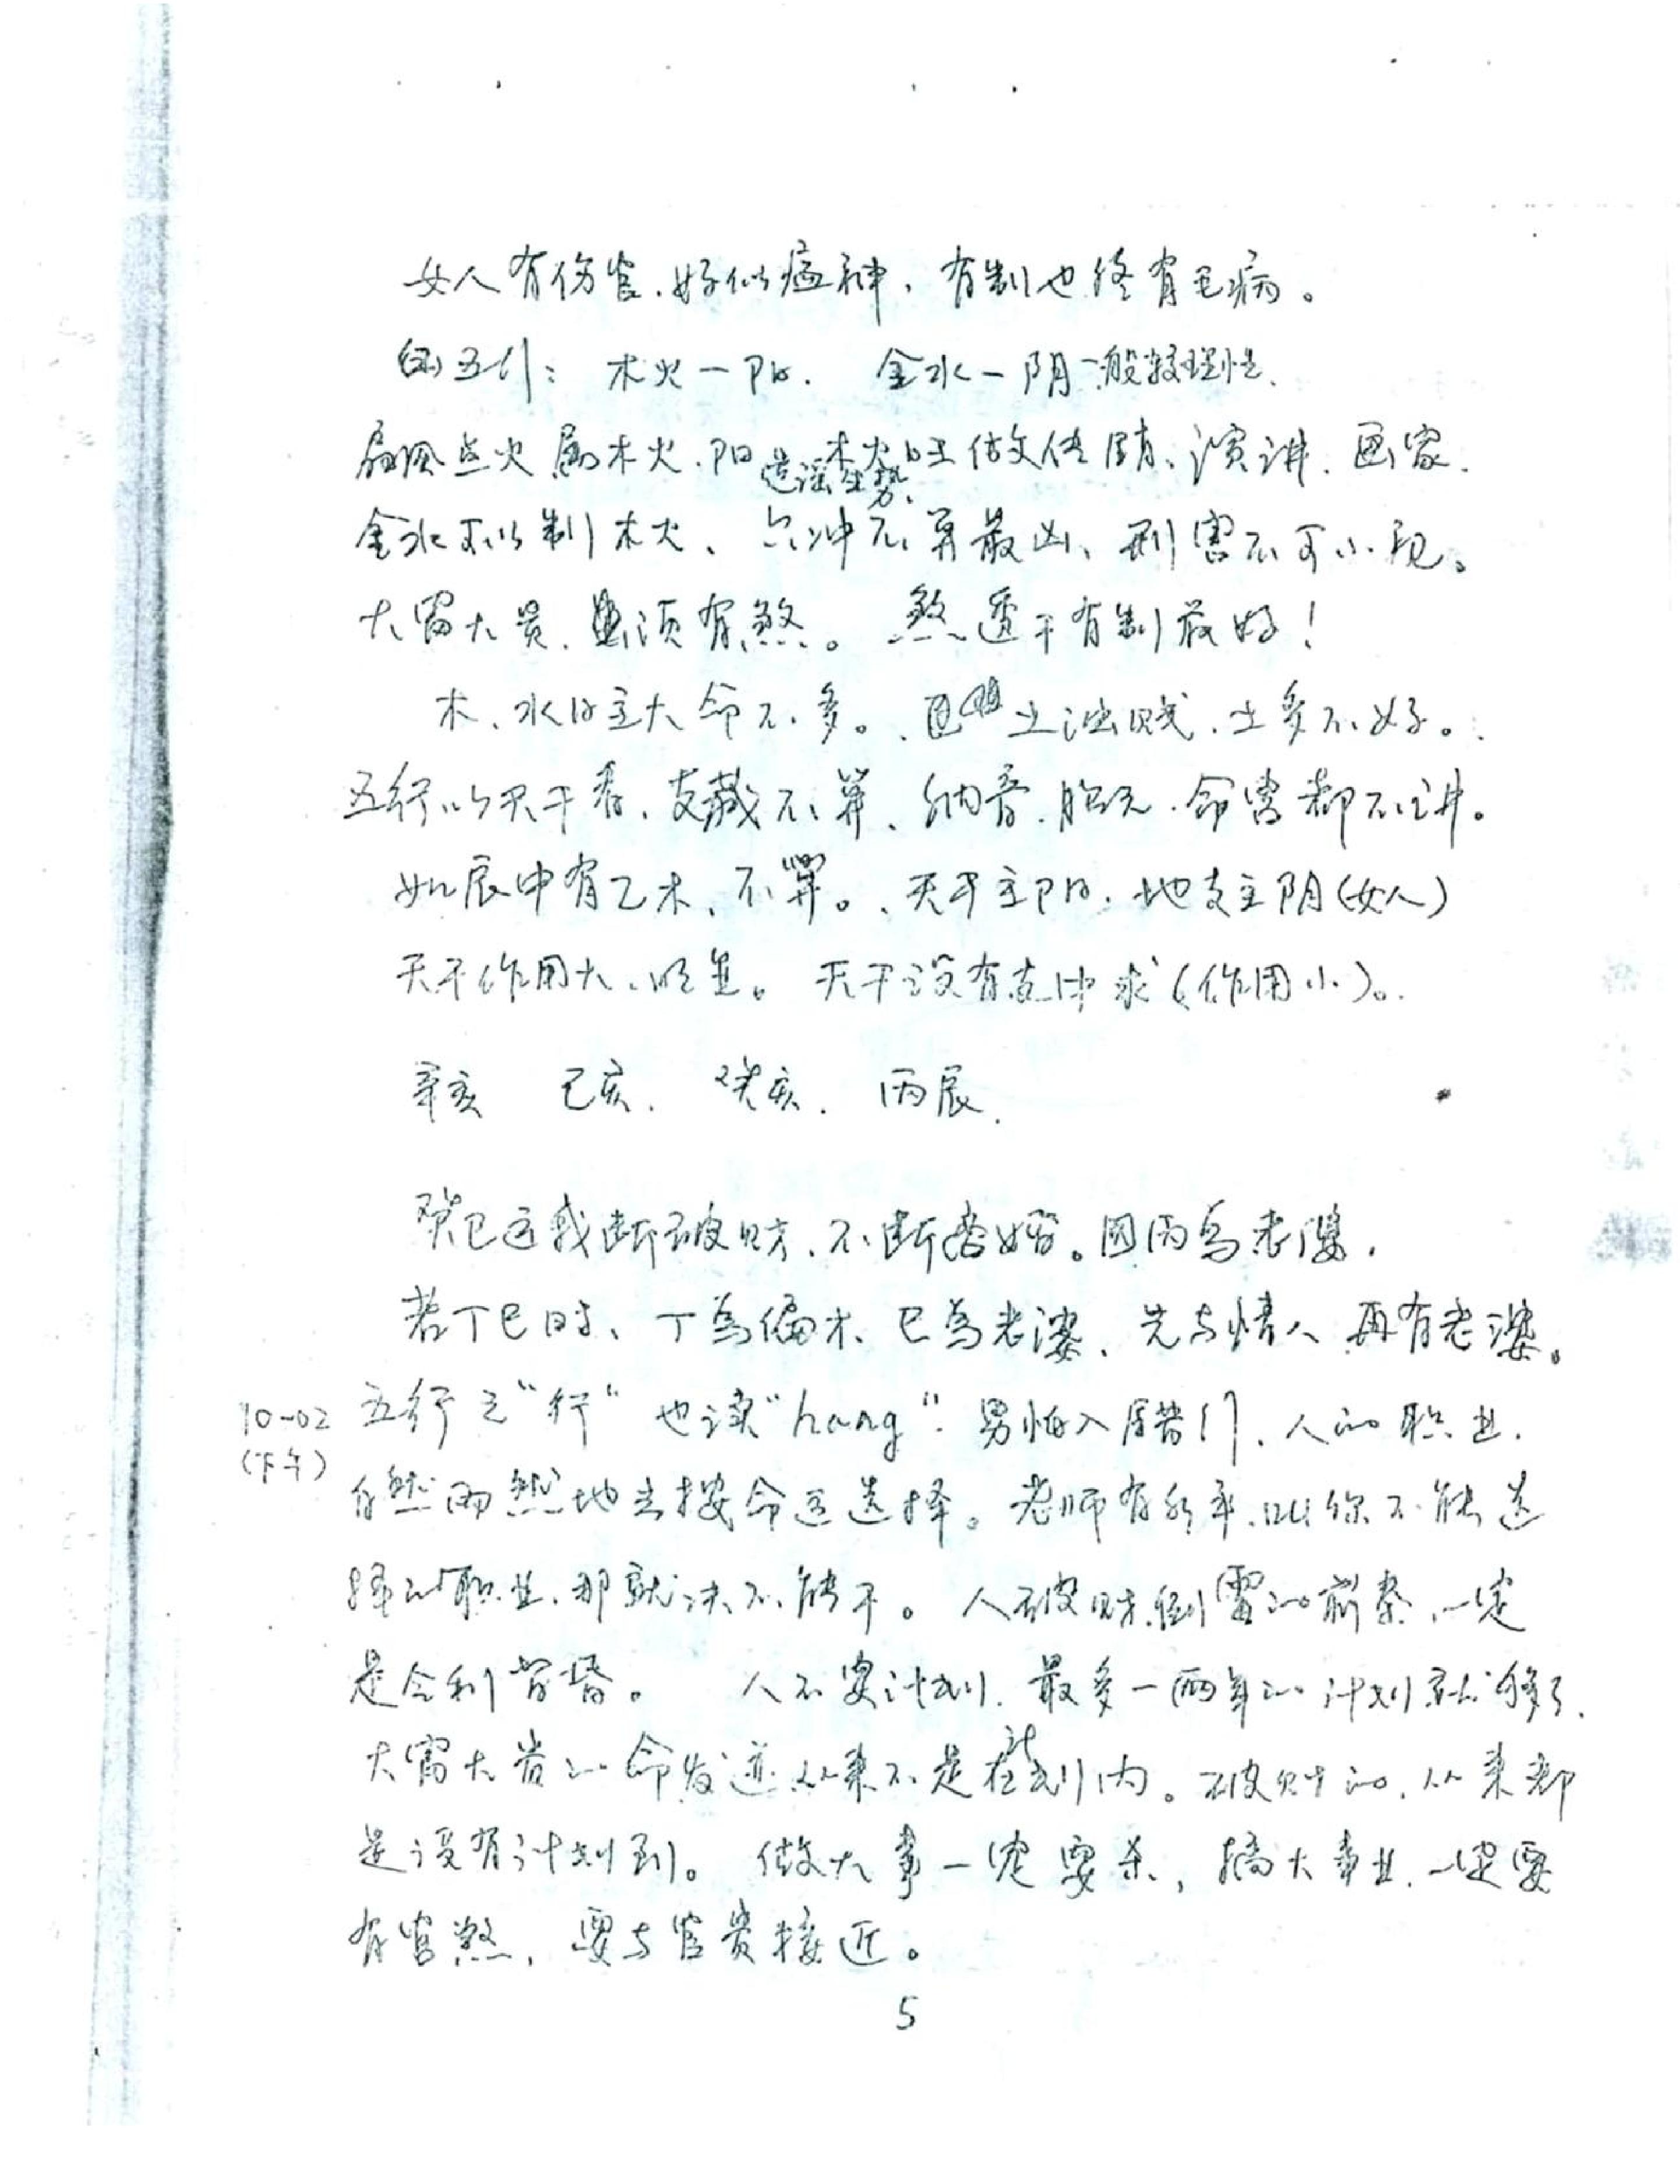 女人有伤官.好似瘟神、有制也终有毛病。
五行：木火—阳. 金水—阴 一般较理性.
扇风点火属木火.阳 木火旺做文体届、演讲.画家.
造谣生势.
金水可以制木火、六冲不算最凶、刑害不可小视。
大富大贵.必须有煞。煞透干有制最好！
木、水日主大命不多。土浊贱.土多不好。
五行以天干看.支藏不算、纳音.胎元.命宫都不讲。
如辰中有乙木、不算。天干主阳.地支主阴(女人)
天干作用大、明显。天干没有支中求(作用小)。
辛亥 己亥. 癸亥. 丙辰.
癸巳运我断破财.不断离婚。因丙为老婆.
若丁巳时、丁为偏才、巳为老婆、先与情人再有老婆。
10-02
(下午)
五行之“行”也读“hang”. 男怕入错行、人的职业.
自然而然地去按命运选择。老师有水平.叫你不能选
择的职业.那就决不能干。人破财倒霉的前奏.一定
是令利智昏。 人不要计划.最多一两年的计划就够了.
大富大贵的命发迹从来不是在计划内。破财的.从来都
是没有计划到。做大事一定要杀，搞大事业.一定要
有官煞、要与官贵接近。
5